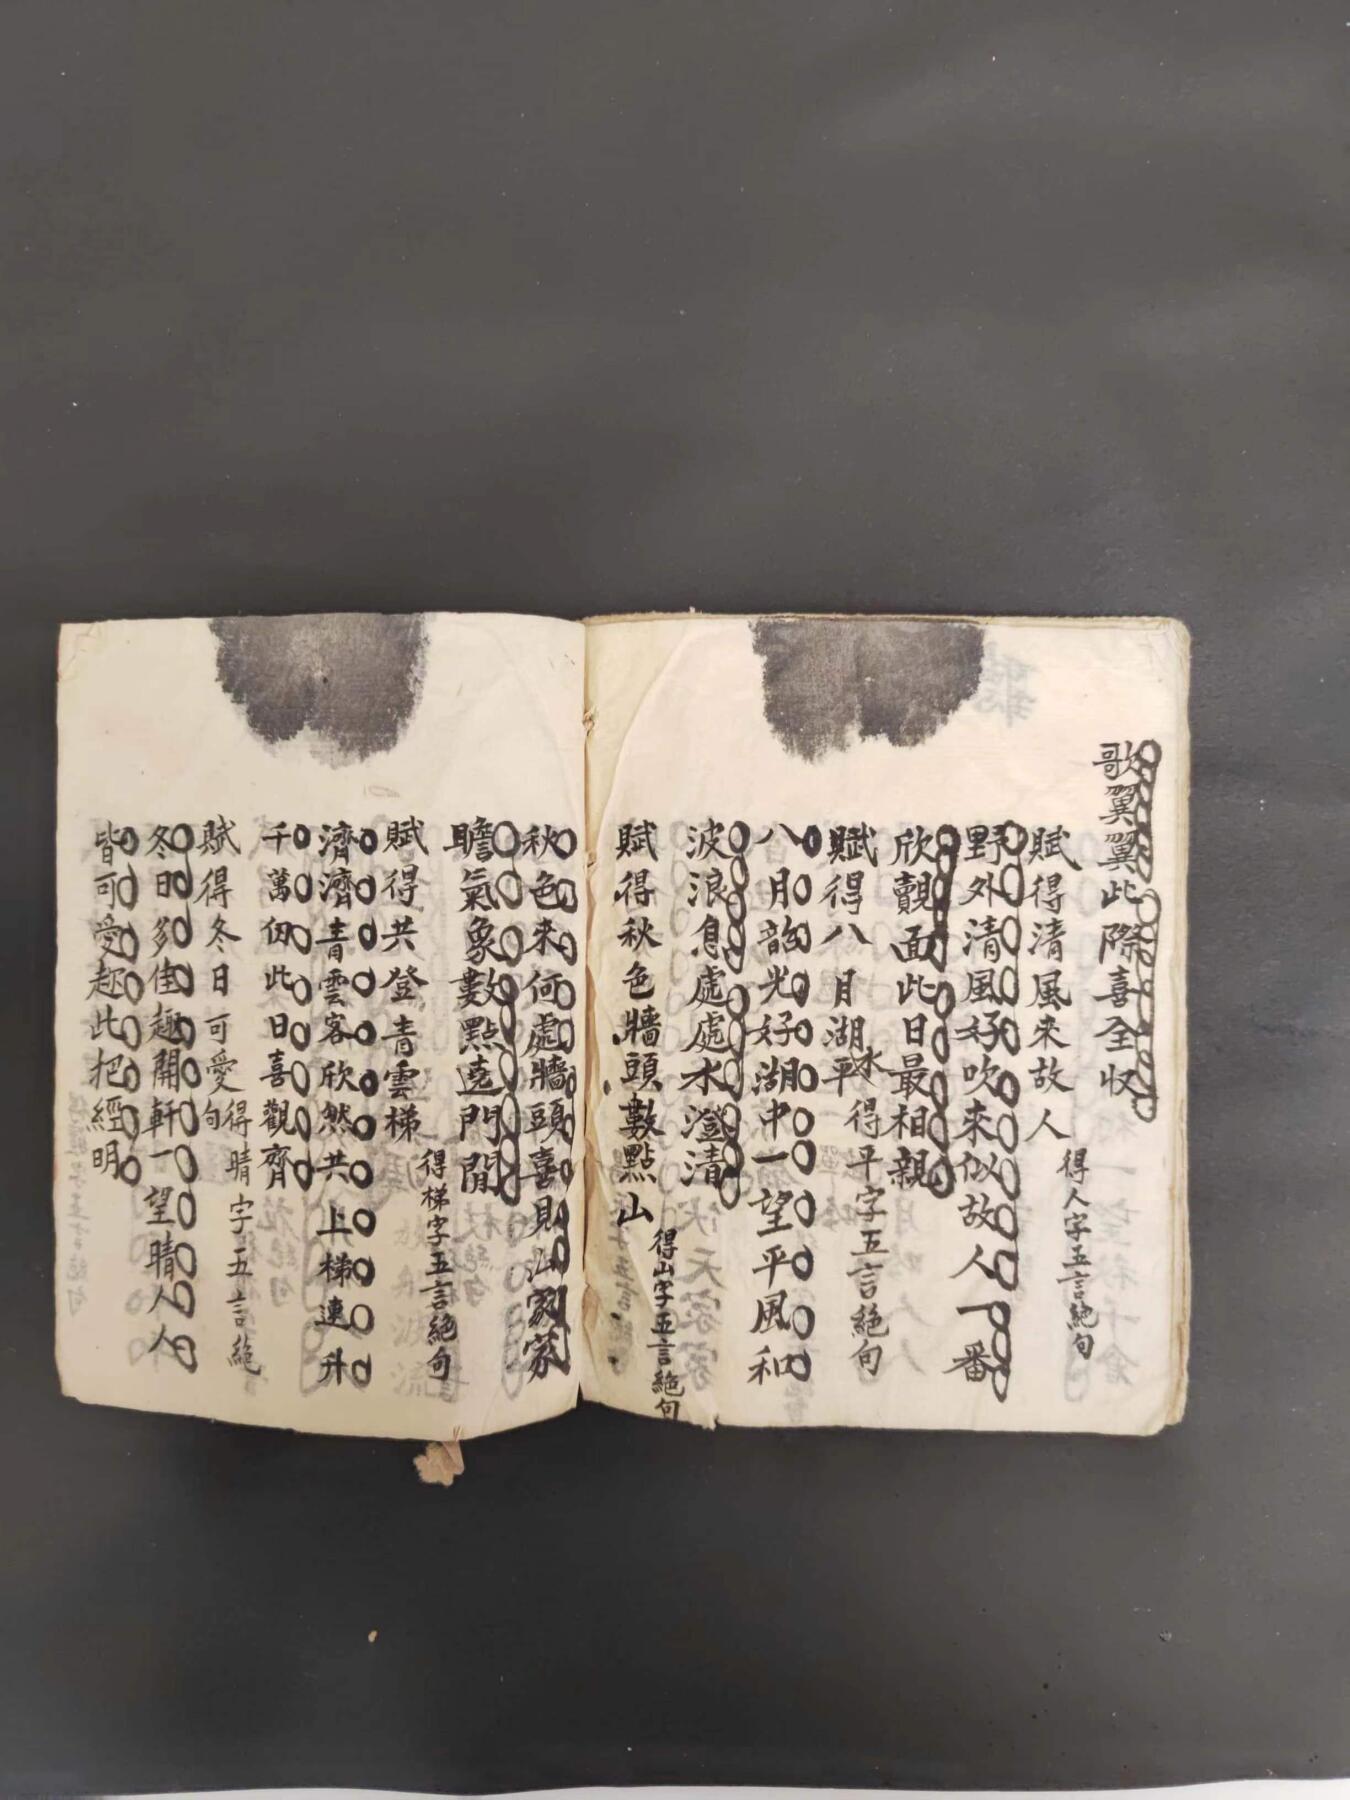 歌翼翼此際喜全収
賦得清風來故人 得人字五言絶句
野外清風好吹來似故人一番
欣覿面此日最相親
賦得八月湖水平 得平字五言絶句
八月韶光好湖中一望平風和
波浪息處處水澄清
賦得秋色牆頭數點山 得山字五言絶句
秋色來何處牆頭喜見山家家
瞻氣象數點遶門閒
賦得共登青雲梯 得梯字五言絶句
濟濟青雲客欣然共上梯連升
千萬仞此日喜觀齊
賦得冬日可愛 得晴字五言絶句
冬日多佳趣開軒一望晴人人
皆可愛趂此把經明